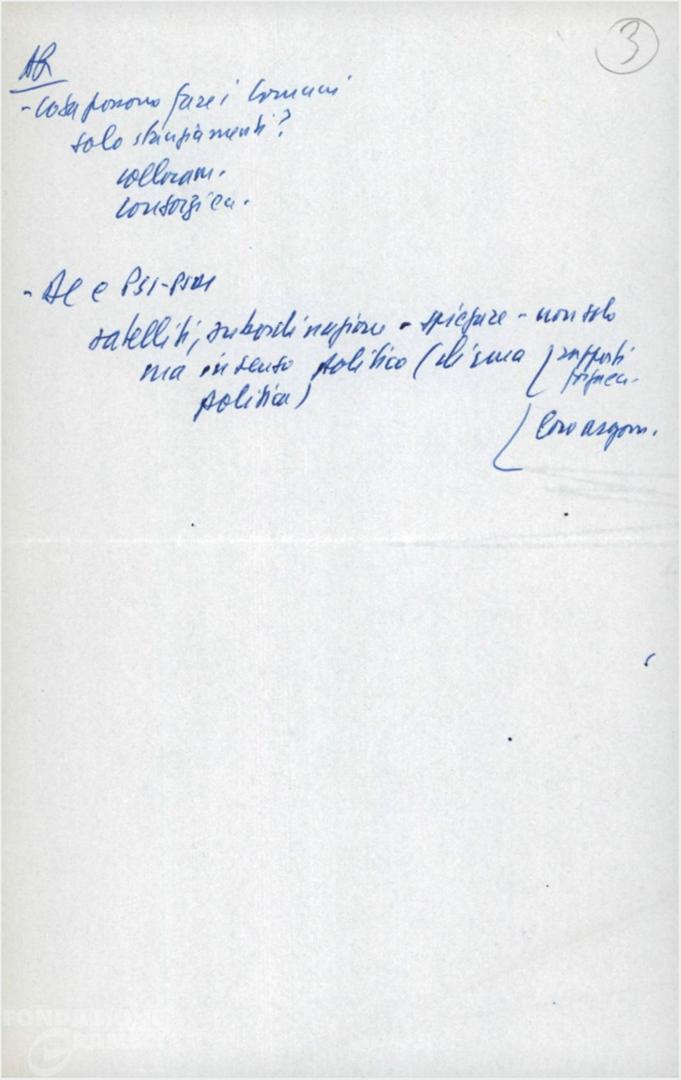 3
AR
- Cosa possono fare i Comuni
solo stanziamenti?
collocam.
consorzi ca.
- AC e PSI-PSDI
satelliti, subordinazione - spiegare - non solo
ma in senso politico (di una
politica)
rapporti
loro argom.
FONDAZIONE
GRAMSCI